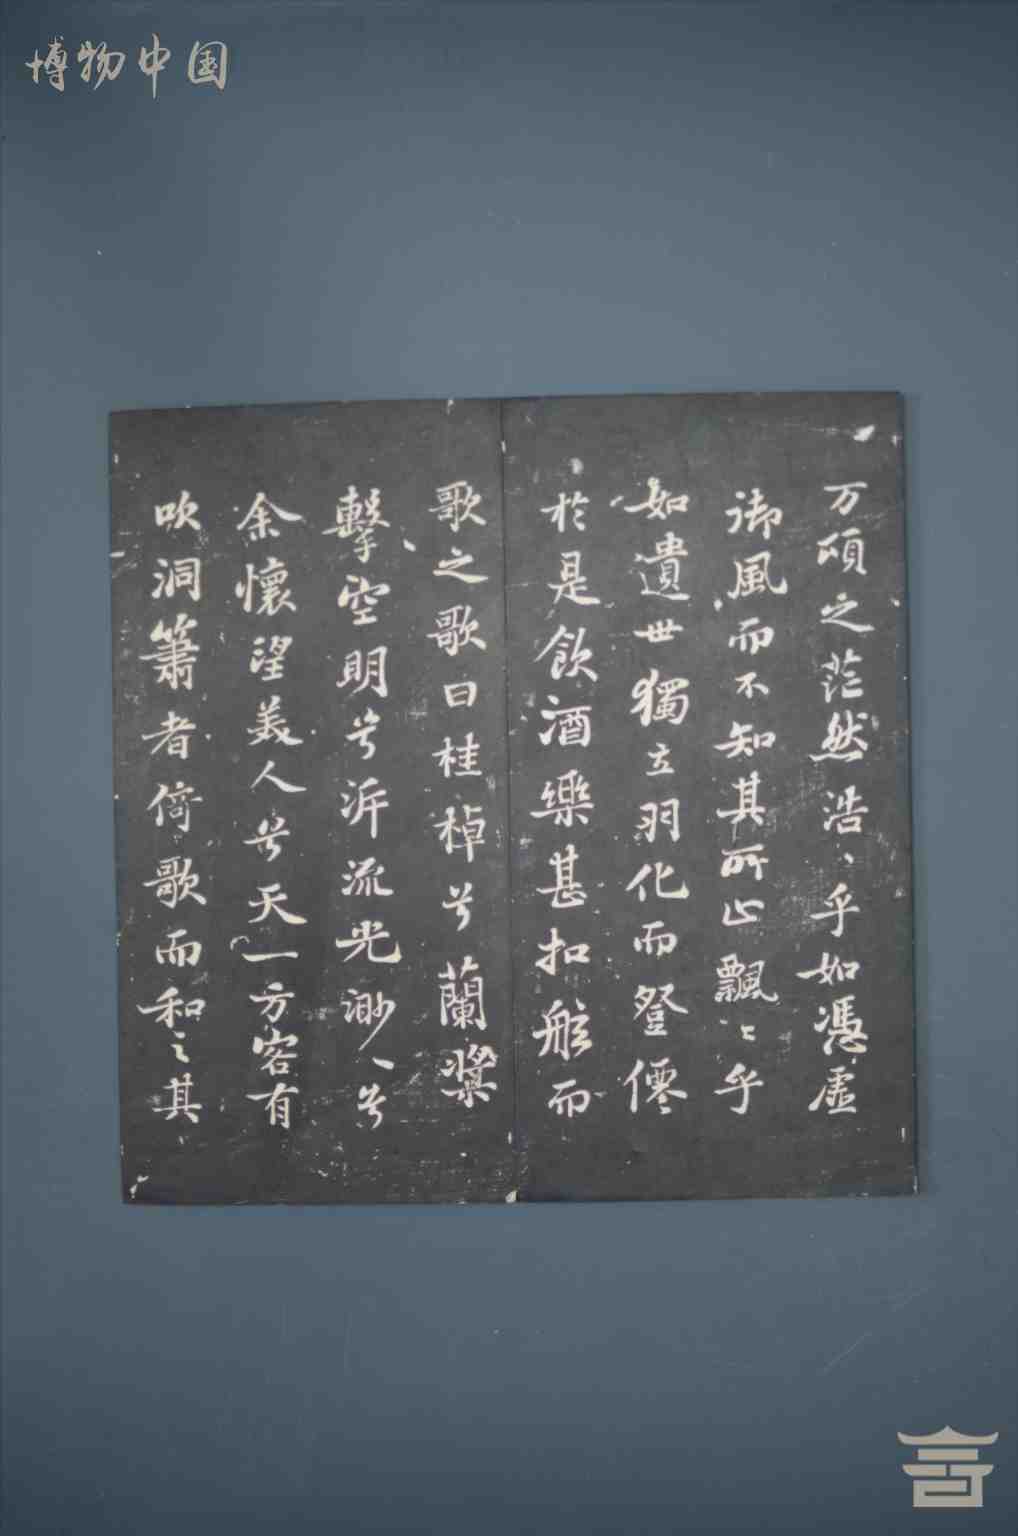 博物中国
万頃之茫然浩〻乎如馮虛
御風而不知其所止飄〻乎
如遺世獨立羽化而登僊
於是飲酒樂甚扣舷而
歌之歌曰桂棹兮蘭槳
擊空明兮泝流光渺〻兮
余懷望美人兮天一方客有
吹洞簫者倚歌而和之其